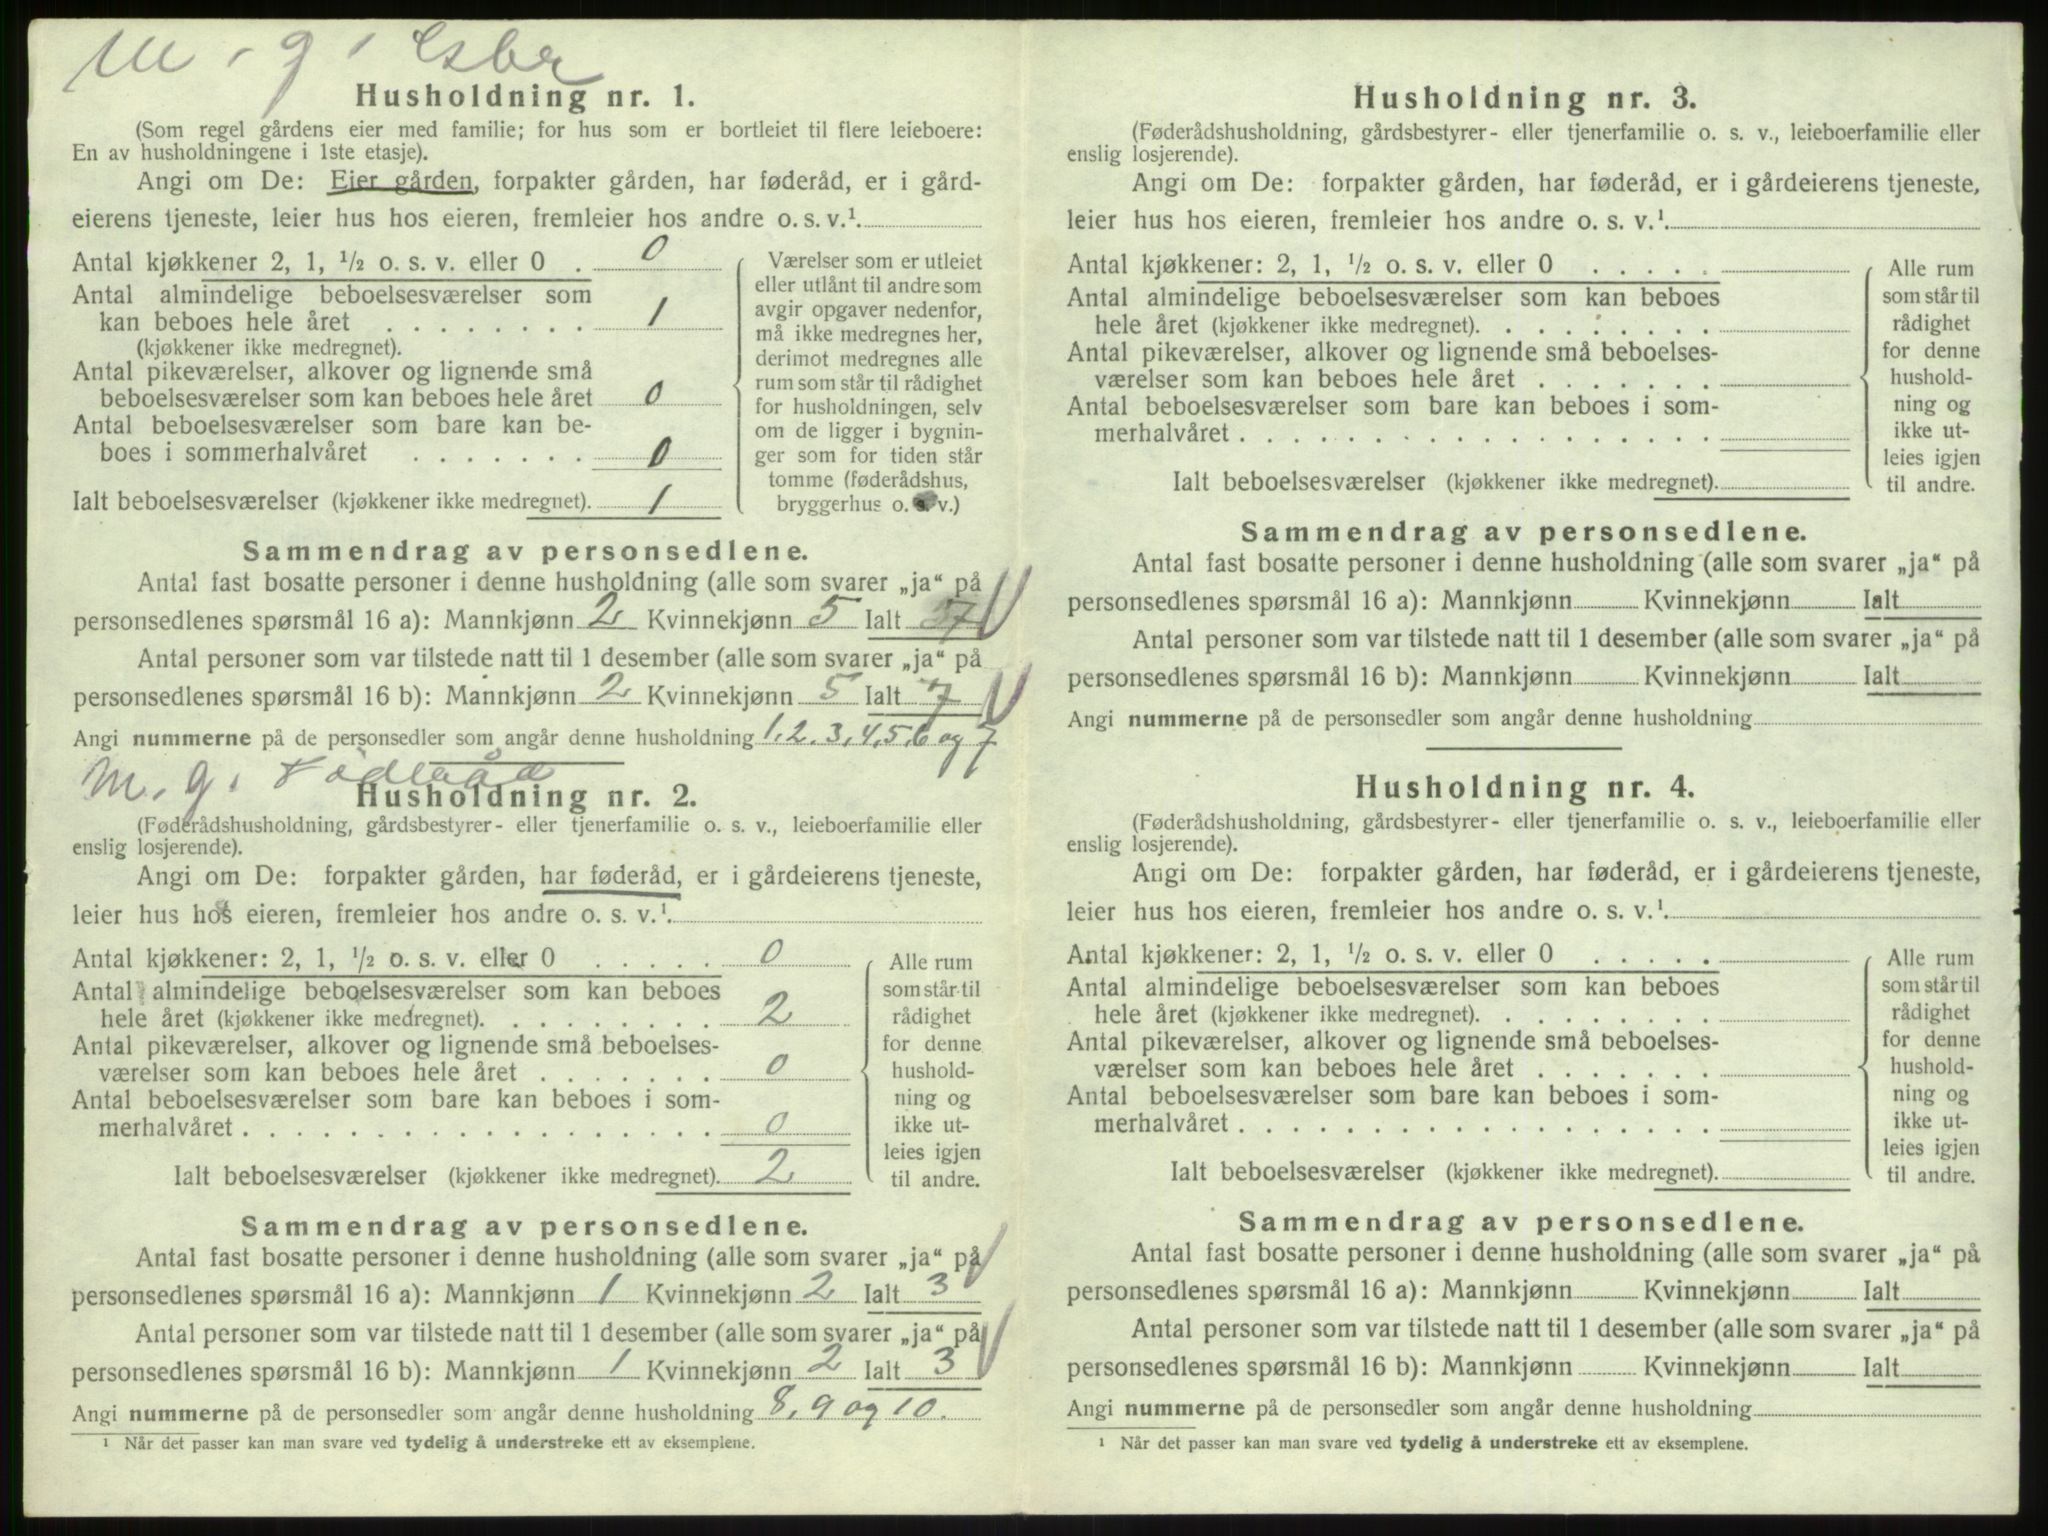 M. g. Gsbr
Husholdning nr. 1.
(Som regel gårdens eier med familie; for hus som er bortleiet til flere leieboere:
En av husholdningene i 1ste etasje).
Angi om De: Eier gården, forpakter gården, har føderåd, er i gård-
eierens tjeneste, leier hus hos eieren, fremleier hos andre o. s. v.¹
Antal kjøkkener 2, 1, ½ o. s. v. eller 0 . 0
Antal almindelige beboelsesværelser som
kan beboes hele året . . . . . . . . 1
(kjøkkener ikke medregnet).
Antal pikeværelser, alkover og lignende små
beboelsesværelser som kan beboes hele året 0
Antal beboelsesværelser som bare kan be-
boes i sommerhalvåret . . . . . . . 0
Ialt beboelsesværelser (kjøkkener ikke medregnet). 1
Værelser som er utleiet
eller utlånt til andre som
avgir opgaver nedenfor,
må ikke medregnes her,
derimot medregnes alle
rum som står til rådighet
for husholdningen, selv
om de ligger i bygnin-
ger som for tiden står
tomme (føderådshus,
bryggerhus o. s. v.)
Sammendrag av personsedlene.
Antal fast bosatte personer i denne husholdning (alle som svarer „ja“ på
personsedlenes spørsmål 16 a): Mannkjønn 2 Kvinnekjønn 5 Ialt 7
Antal personer som var tilstede natt til 1 desember (alle som svarer „ja“ på
personsedlenes spørsmål 16 b): Mannkjønn 2 Kvinnekjønn 5 Ialt 7
Angi nummerne på de personsedler som angår denne husholdning 1,2.3,4,5,6 og 7
M. g. Föderåd
Husholdning nr. 2.
(Føderådshusholdning, gårdsbestyrer- eller tjenerfamilie o. s. v., leieboerfamilie eller
enslig losjerende).
Angi om De: forpakter gården, har føderåd, er i gårdeierens tjeneste,
leier hus hos eieren, fremleier hos andre o. s. v.¹
Antal kjøkkener: 2, 1, ½ o. s. v. eller 0 . . . . . 0
Antal almindelige beboelsesværelser som kan beboes
hele året (kjøkkener ikke medregnet). . . . . . . . 2
Antal pikeværelser, alkover og lignende små beboelses-
værelser som kan beboes hele året . . . . . . . 0
Antal beboelsesværelser som bare kan beboes i som-
merhalvåret . . . . . . . . . . . . . . . . . . 0
Ialt beboelsesværelser (kjøkkener ikke medregnet). 2
Alle rum
som står til
rådighet
for denne
hushold-
ning og
ikke ut-
leies igjen
til andre.
Sammendrag av personsedlene.
Antal fast bosatte personer i denne husholdning (alle som svarer „ja“ på
personsedlenes spørsmål 16 a): Mannkjønn 1 Kvinnekjønn 2 Ialt 3
Antal personer som var tilstede natt til 1 desember (alle som svarer „ja“ på
personsedlenes spørsmål 16 b): Mannkjønn 1 Kvinnekjønn 2 Ialt 3
Angi nummerne på de personsedler som angår denne husholdning 8, 9 og 10.
¹ Når det passer kan man svare ved tydelig å understreke ett av eksemplene.
Husholdning nr. 3.
(Føderådshusholdning, gårdsbestyrer- eller tjenerfamilie o. s. v., leieboerfamilie eller
enslig losjerende).
Angi om De: forpakter gården, har føderåd, er i gårdeierens tjeneste,
leier hus hos eieren, fremleier hos andre o. s. v.¹
Antal kjøkkener: 2, 1, ½ o. s. v. eller 0 . . . . .
Antal almindelige beboelsesværelser som kan beboes
hele året (kjøkkener ikke medregnet). . . . . . . .
Antal pikeværelser, alkover og lignende små beboelses-
værelser som kan beboes hele året . . . . . . .
Antal beboelsesværelser som bare kan beboes i som-
merhalvåret . . . . . . . . . . . . . . . . . .
Ialt beboelsesværelser (kjøkkener ikke medregnet).
Alle rum
som står til
rådighet
for denne
hushold-
ning og
ikke ut-
leies igjen
til andre.
Sammendrag av personsedlene.
Antal fast bosatte personer i denne husholdning (alle som svarer „ja“ på
personsedlenes spørsmål 16 a): Mannkjønn Kvinnekjønn Ialt
Antal personer som var tilstede natt til 1 desember (alle som svarer „ja“ på
personsedlenes spørsmål 16 b): Mannkjønn Kvinnekjønn Ialt
Angi nummerne på de personsedler som angår denne husholdning
Husholdning nr. 4.
(Føderådshusholdning, gårdsbestyrer- eller tjenerfamilie o. s. v., leieboerfamilie eller
enslig losjerende).
Angi om De: forpakter gården, har føderåd, er i gårdeierens tjeneste,
leier hus hos eieren, fremleier hos andre o. s. v.¹
Antal kjøkkener: 2, 1, ½ o. s. v. eller 0 . . . . .
Antal almindelige beboelsesværelser som kan beboes
hele året (kjøkkener ikke medregnet). . . . . . . .
Antal pikeværelser, alkover og lignende små beboelses-
værelser som kan beboes hele året . . . . . . .
Antal beboelsesværelser som bare kan beboes i som-
merhalvåret . . . . . . . . . . . . . . . . . .
Ialt beboelsesværelser (kjøkkener ikke medregnet).
Alle rum
som står til
rådighet
for denne
hushold-
ning og
ikke ut-
leies igjen
til andre.
Sammendrag av personsedlene.
Antal fast bosatte personer i denne husholdning (alle som svarer „ja“ på
personsedlenes spørsmål 16 a): Mannkjønn Kvinnekjønn Ialt
Antal personer som var tilstede natt til 1 desember (alle som svarer „ja“ på
personsedlenes spørsmål 16 b): Mannkjønn Kvinnekjønn Ialt
Angi nummerne på de personsedler som angår denne husholdning
¹ Når det passer kan man svare ved tydelig å understreke ett av eksemplene.